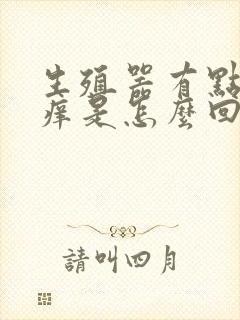 生殖器有點
痒是怎麼回
請叫四月